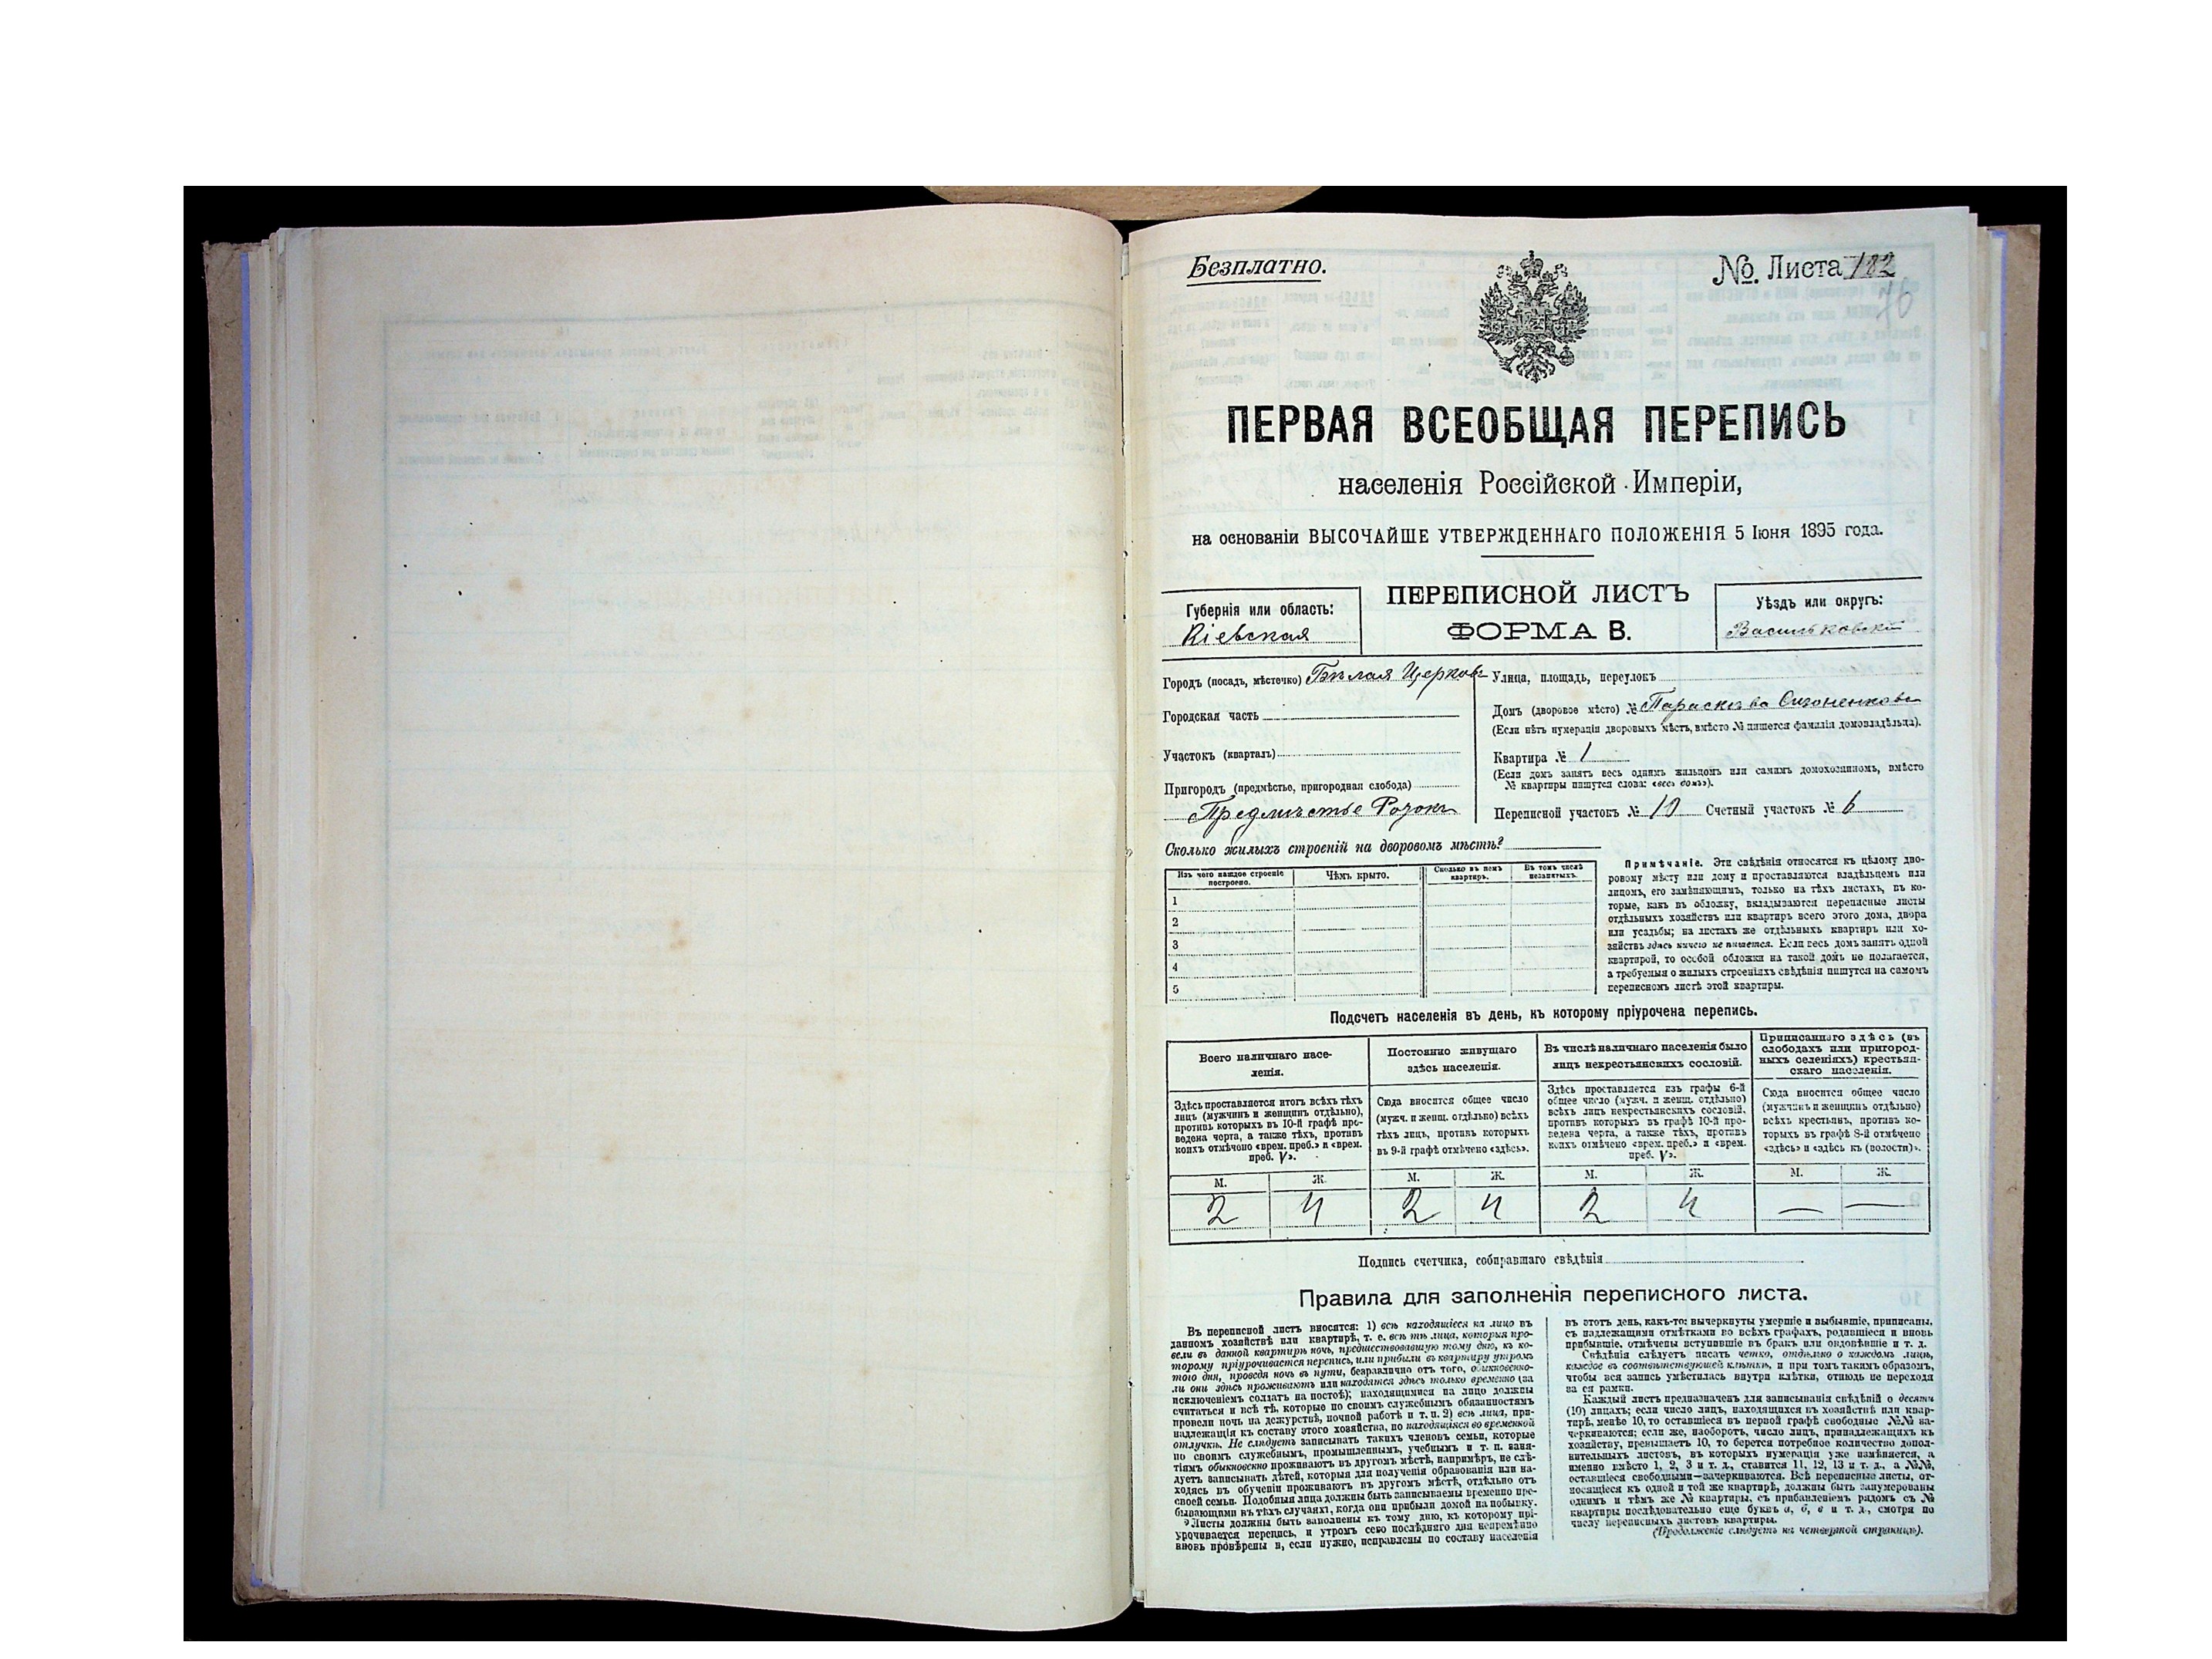 Безплатно.
№. Листа 182
76
ПЕРВАЯ ВСЕОБЩАЯ ПЕРЕПИСЬ
населенія Россійской Имперіи,
на основаніи ВЫСОЧАЙШЕ УТВЕРЖДЕННАГО ПОЛОЖЕНІЯ 5 Іюня 1895 года.
Губернія или область:
Кіевская
ПЕРЕПИСНОЙ ЛИСТЪ
ФОРМА В.
Уѣздъ или округъ:
Васильковскій
Городъ (посадъ, мѣстечко) Бѣлая Церковь
Городская часть
Участокъ (кварталъ)
Пригородъ (предмѣстье, пригородная слобода)
Предмѣстье
Улица, площадь, переулокъ
Домъ (дворовое мѣсто) №
(Если нѣтъ нумераціи дворовыхъ мѣстъ, вмѣсто № пишется фамилія домовладѣльца).
Квартира № 1
(Если домъ занятъ весь однимъ жильцомъ или самимъ домохозяиномъ, вмѣсто
№ квартиры пишутся слова: «весь домъ»).
Переписной участокъ № 10 Счетный участокъ № 6
Сколько жилыхъ строеній на дворовомъ мѣстѣ?
Изъ чего каждое строеніе
построено.
Чѣмъ крыто.
Сколько въ немъ
квартиръ.
Въ томъ числѣ
незанятыхъ.
1
2
3
4
5
Примѣчаніе. Эти свѣдѣнія относятся къ цѣлому дво-
ровому мѣсту или дому и проставляются владѣльцемъ или
лицомъ, его замѣняющимъ, только на тѣхъ листахъ, въ ко-
торые, какъ въ обложку, вкладываются переписные листы
отдѣльныхъ хозяйствъ или квартиръ всего этого дома, двора
или усадьбы; на листахъ же отдѣльныхъ квартиръ или хо-
зяйствъ здѣсь ничего не пишется. Если весь домъ занятъ одной
квартирой, то особой обложки на такой домъ не полагается,
а требуемыя о жилыхъ строеніяхъ свѣдѣнія пишутся на самомъ
переписномъ листѣ этой квартиры.
Подсчетъ населенія въ день, къ которому пріурочена перепись.
Всего наличнаго насе-
ленія.
Здѣсь проставляется итогъ всѣхъ тѣхъ
лицъ (мужчинъ и женщинъ отдѣльно),
противъ которыхъ въ 10-й графѣ про-
ведена черта, а также тѣхъ, противъ
коихъ отмѣчено «врем. преб.» и «врем.
преб. V».
М. Ж.
2 4
Постоянно живущаго
здѣсь населенія.
Сюда вносится общее число
(мужч. и женщ. отдѣльно) всѣхъ
тѣхъ лицъ, противъ которыхъ
въ 9-й графѣ отмѣчено «здѣсь».
М. Ж.
2 4
Въ числѣ наличнаго населенія было
лицъ некрестьянскихъ сословій.
Здѣсь проставляется изъ графы 6-й
общее число (мужч. и женщ. отдѣльно)
всѣхъ лицъ некрестьянскихъ сословій,
противъ которыхъ въ графѣ 10-й про-
ведена черта, а также тѣхъ, противъ
коихъ отмѣчено «врем. преб.» и «врем.
преб. V».
М. Ж.
2 4
Приписаннаго здѣсь (въ
слободахъ или пригород-
ныхъ селеніяхъ) крестьян-
скаго населенія.
Сюда вносится общее число
(мужчинъ и женщинъ отдѣльно)
всѣхъ крестьянъ, противъ ко-
торыхъ въ графѣ 8-й отмѣчено
«здѣсь» и «здѣсь къ (волости)».
М. Ж.
— —
Подпись счетчика, собиравшаго свѣдѣнія
Правила для заполненія переписного листа.
Въ переписной листъ вносятся: 1) всѣ находящіеся на лицо въ
данномъ хозяйствѣ или квартирѣ, т. е. всѣ тѣ лица, которыя про-
вели въ данной квартирѣ ночь, предшествовавшую тому дню, къ ко-
торому пріурочивается перепись, или прибыли въ квартиру утромъ
того дня, проведя ночь въ пути, безразлично отъ того, обыкновенно-
ли они здѣсь проживаютъ или находятся здѣсь только временно (за
исключеніемъ солдатъ на постоѣ); находящимися на лицо должны
считаться и всѣ тѣ, которые по своимъ служебнымъ обязанностямъ
провели ночь на дежурствѣ, ночной работѣ и т. п. 2) всѣ лица, при-
надлежащія къ составу этого хозяйства, но находящіяся во временной
отлучкѣ. Не слѣдуетъ записывать такихъ членовъ семьи, которые
по своимъ служебнымъ, промышленнымъ, учебнымъ и т. п. заня-
тіямъ обыкновенно проживаютъ въ другомъ мѣстѣ, напримѣръ, не слѣ-
дуетъ записывать дѣтей, которыя для полученія образованія или на-
ходясь въ обученіи проживаютъ въ другомъ мѣстѣ, отдѣльно отъ
своей семьи. Подобныя лица должны быть записываемы временно пре-
бывающими въ тѣхъ случаяхъ, когда они прибыли домой на побывку.
Листы должны быть заполнены къ тому дню, къ которому прі-
урочивается перепись, и утромъ сего послѣдняго дня непремѣнно
вновь провѣрены и, если нужно, исправлены по составу населенія
въ этотъ день, какъ-то: вычеркнуты умершіе и выбывшіе, приписаны,
съ надлежащими отмѣтками во всѣхъ графахъ, родившіеся и вновь
прибывшіе, отмѣчены вступившіе въ бракъ или овдовѣвшіе и т. д.
Свѣдѣнія слѣдуетъ писать четко, отдѣльно о каждомъ лицѣ,
каждое въ соотвѣтствующей клѣткѣ, и при томъ такимъ образомъ,
чтобы вся запись умѣстилась внутри клѣтки, отнюдь не переходя
за ея рамки.
Каждый листъ предназначенъ для записыванія свѣдѣній о десяти
(10) лицахъ; если число лицъ, находящихся въ хозяйствѣ или квар-
тирѣ, менѣе 10, то оставшіеся въ первой графѣ свободные №№ за-
черкиваются; если же, наоборотъ, число лицъ, принадлежащихъ къ
хозяйству, превышаетъ 10, то берется потребное количество допол-
нительныхъ листовъ, въ которыхъ нумерація уже измѣняется, а
именно вмѣсто 1, 2, 3 и т. д., ставится 11, 12, 13 и т. д., а №№,
оставшіеся свободными—зачеркиваются. Всѣ переписные листы, от-
носящіеся къ одной и той же квартирѣ, должны быть занумерованы
однимъ и тѣмъ же № квартиры, съ прибавленіемъ рядомъ съ №
квартиры послѣдовательно еще буквъ а, б, в и т. д., смотря по
числу переписныхъ листовъ квартиры.
(Продолженіе слѣдуетъ на четвертой страницѣ).